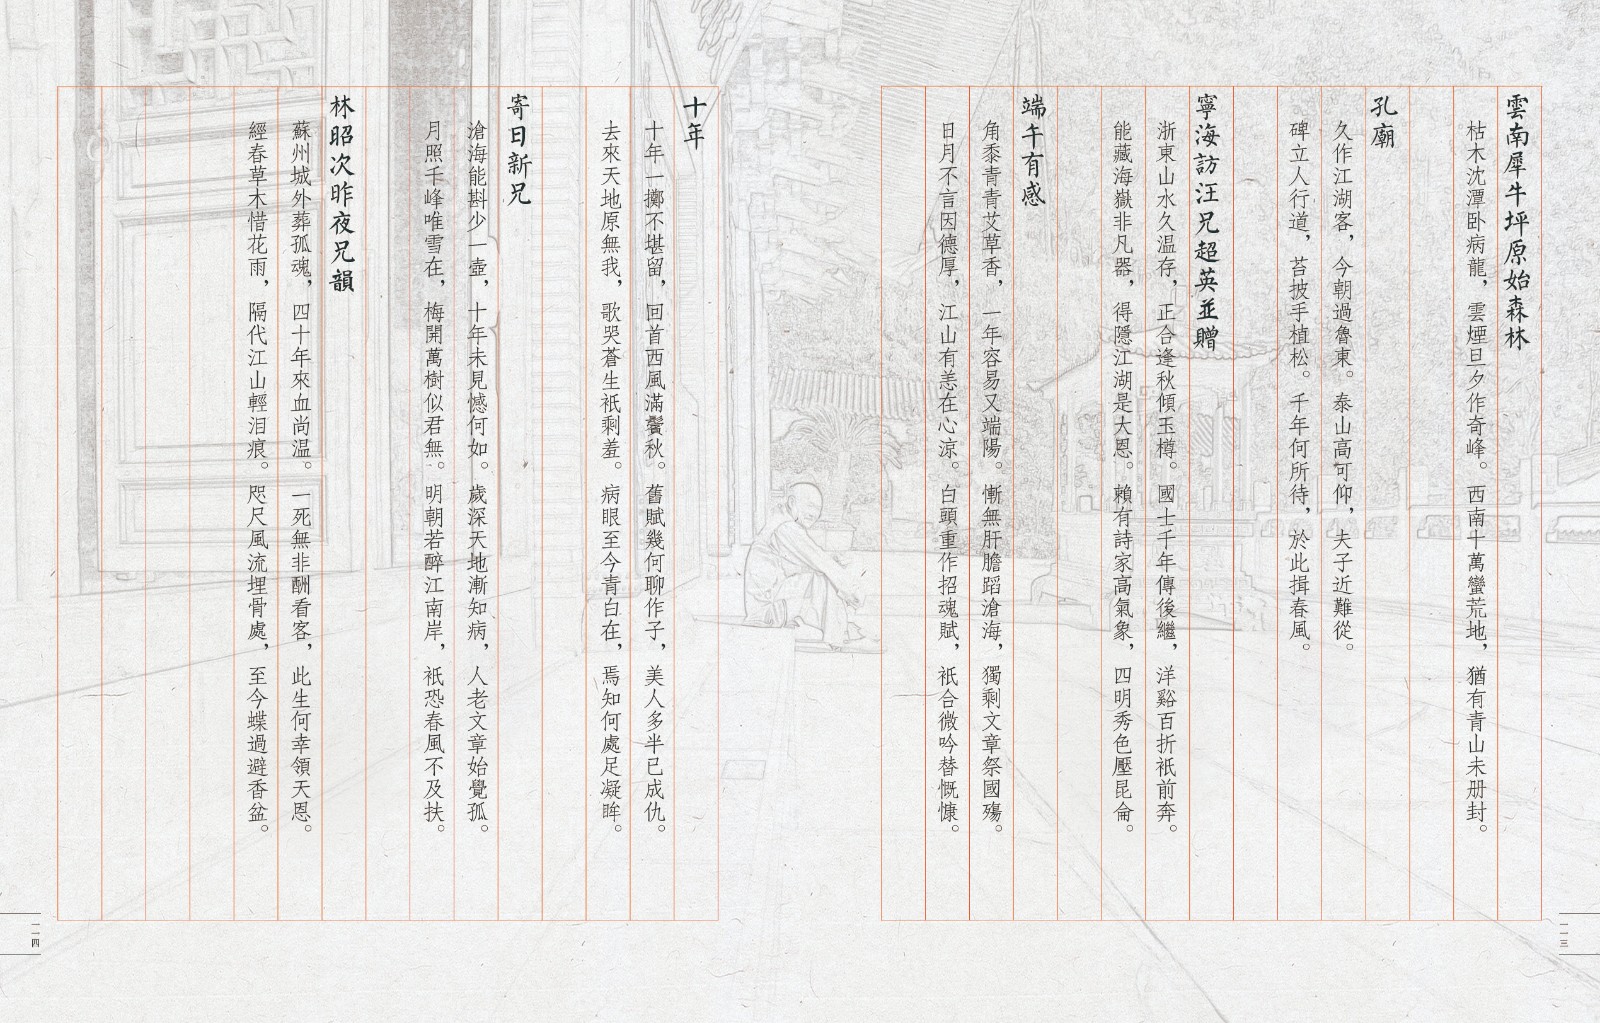 雲南犀牛坪原始森林
枯木沈潭卧病龍，雲煙旦夕作奇峰。西南十萬蠻荒地，猶有青山未册封。
孔廟
久作江湖客，今朝過魯東。泰山高可仰，夫子近難從。
碑立人行道，苔披手植松。千年何所待，於此揖春風。
寧海訪汪兄超英並贈
浙東山水久温存，正合逢秋傾玉樽。國士千年傳後繼，洋谿百折衹前奔。
能藏海嶽非凡器，得隱江湖是大恩。賴有詩家高氣象，四明秀色壓昆侖。
端午有感
角黍青青艾草香，一年容易又端陽。慚無肝膽蹈滄海，獨剩文章祭國殤。
日月不言因德厚，江山有恙在心涼。白頭重作招魂賦，衹合微吟替慨慷。
一一三
十年
十年一擲不堪留，回首西風滿鬢秋。舊賦幾何聊作子，美人多半已成仇。
去來天地原無我，歌哭蒼生衹剩羞。病眼至今青白在，焉知何處足凝眸。
寄日新兄
滄海能斟少一壺，十年未見憾何如。歲深天地漸知病，人老文章始覺孤。
月照千峰唯雪在，梅開萬樹似君無。明朝若醉江南岸，衹恐春風不及扶。
林昭次昨夜兄韻
蘇州城外葬孤魂，四十年來血尚温。一死無非酬看客，此生何幸領天恩。
經春草木惜花雨，隔代江山輕泪痕。咫尺風流埋骨處，至今蝶過避香盆。
一一四